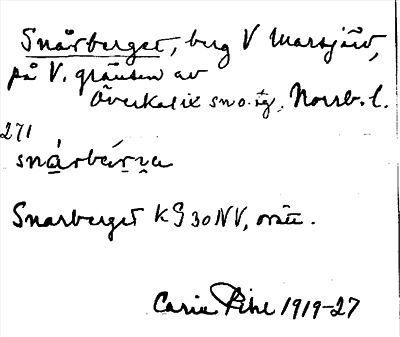 Snårberget, berg V Marsjärv,
på V. gränsen av
Överkalix sn o. tg, Norrb. l.
271
snå̱rbǽr̥n̥a
Snarberget KG 30 NV, orätt.
Carin Pihl 1919-27